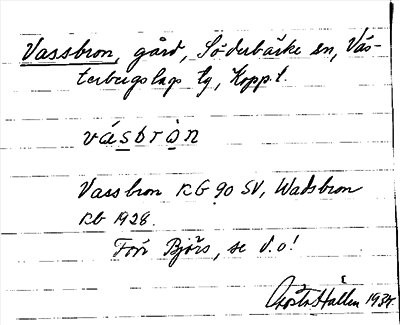 Vassbron, gård, Söderbärke sn, Väs-
terbergslags tg, Kopp. l.
vásbròn
Vassbron RG 90 SV, Wadsbron
RB 1928.
Förr Björs, se d.o!
Gösta Hallén 1934.